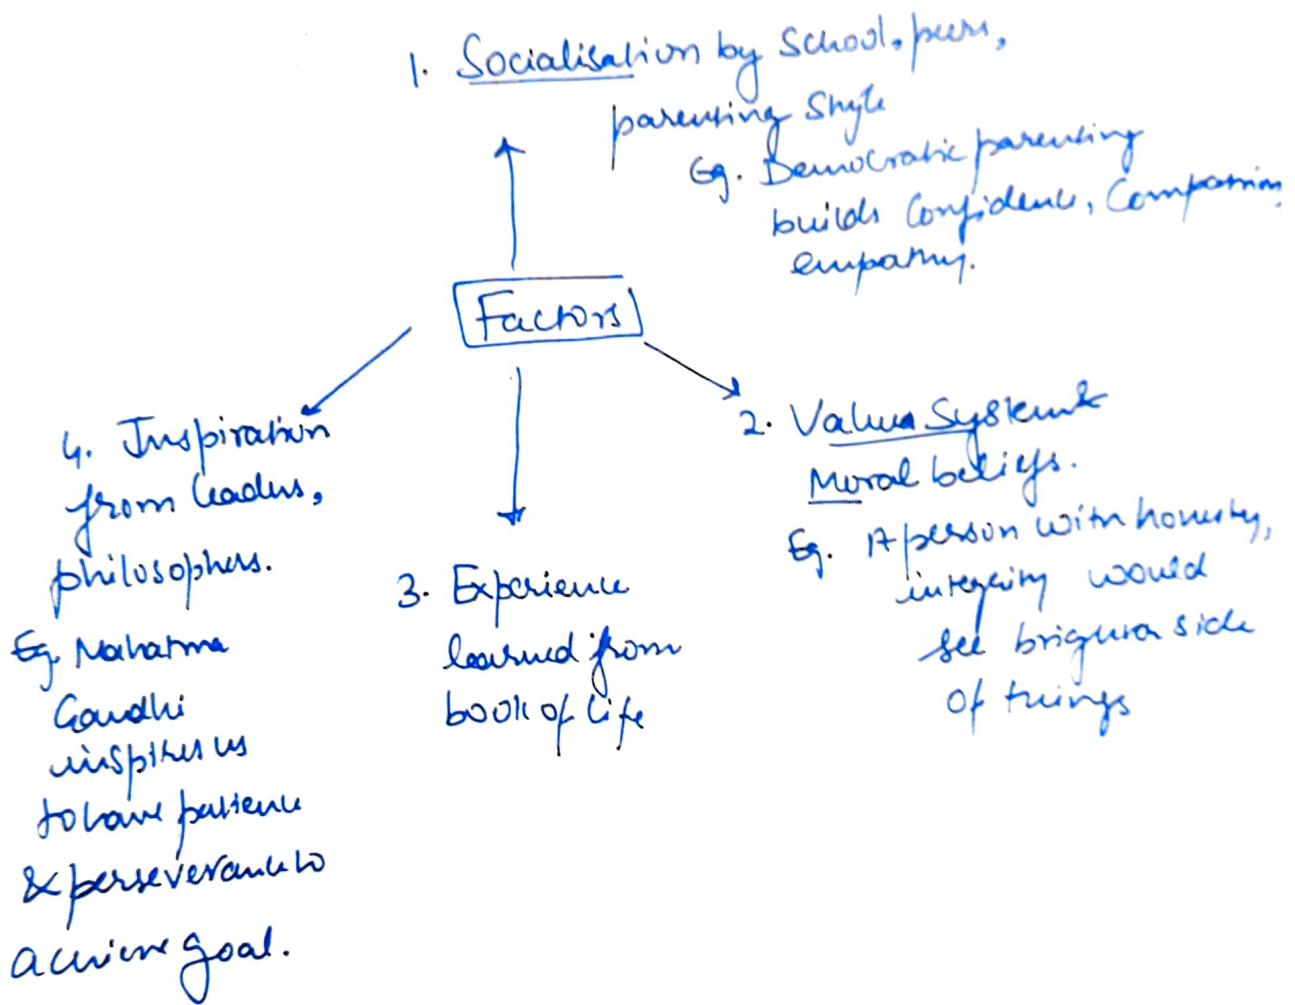 1. Socialisation by School, peers,
parenting style
Eg. Democratic parenting
builds Confidence, Compassion,
empathy.
Factors
2. Value System &
Moral beliefs.
Eg. A person with honesty,
integrity would
see brighter side
of things
3. Experience
learned from
book of life
4. Inspiration
from leaders,
philosophers.
Eg. Mahatma
Gandhi
inspires us
to have patience
& perseverance to
achieve goal.